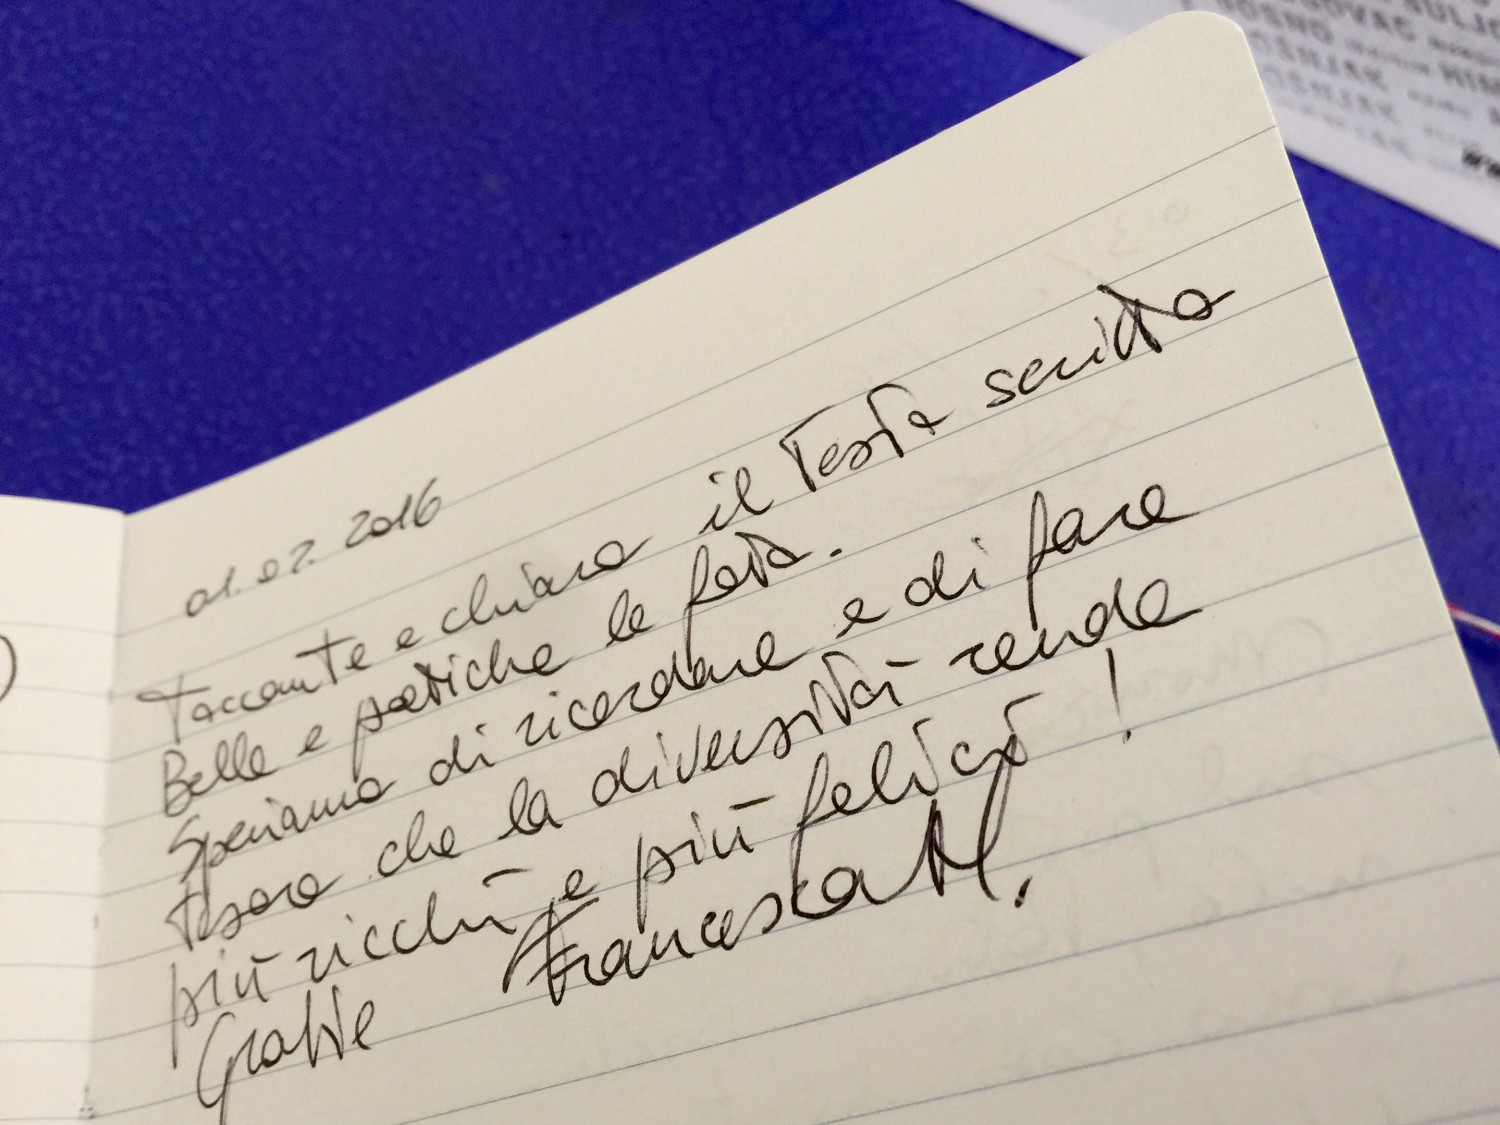 01.07.2016
Toccante e chiaro il testo scritto
Belle e poetiche le foto.
Speriamo di ricordare e di fare
tesoro che la diversità rende
più ricchi e più felici!
Grazie Francesca M.
SULJ
OVAC
OSNO